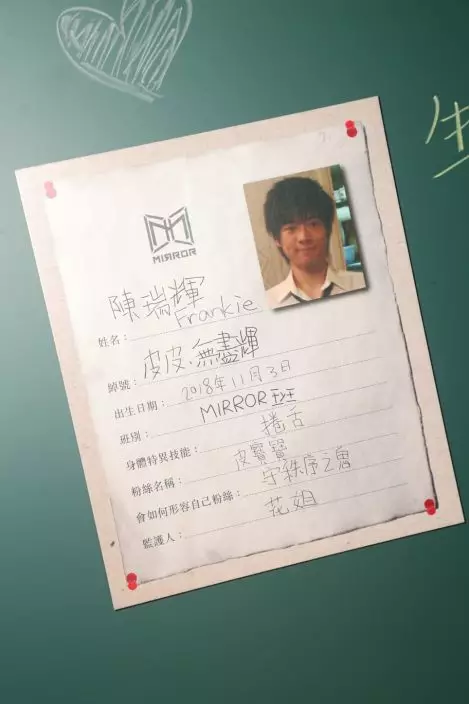 生
MIRROR
姓名：陳瑞輝 Frankie
綽號：皮皮、無盡輝
出生日期：2018年11月3日
班別：MIRROR班
身體特異技能：捲舌
粉絲名稱：皮寶寶
會如何形容自己粉絲：守秩序之鬼
監護人：花姐